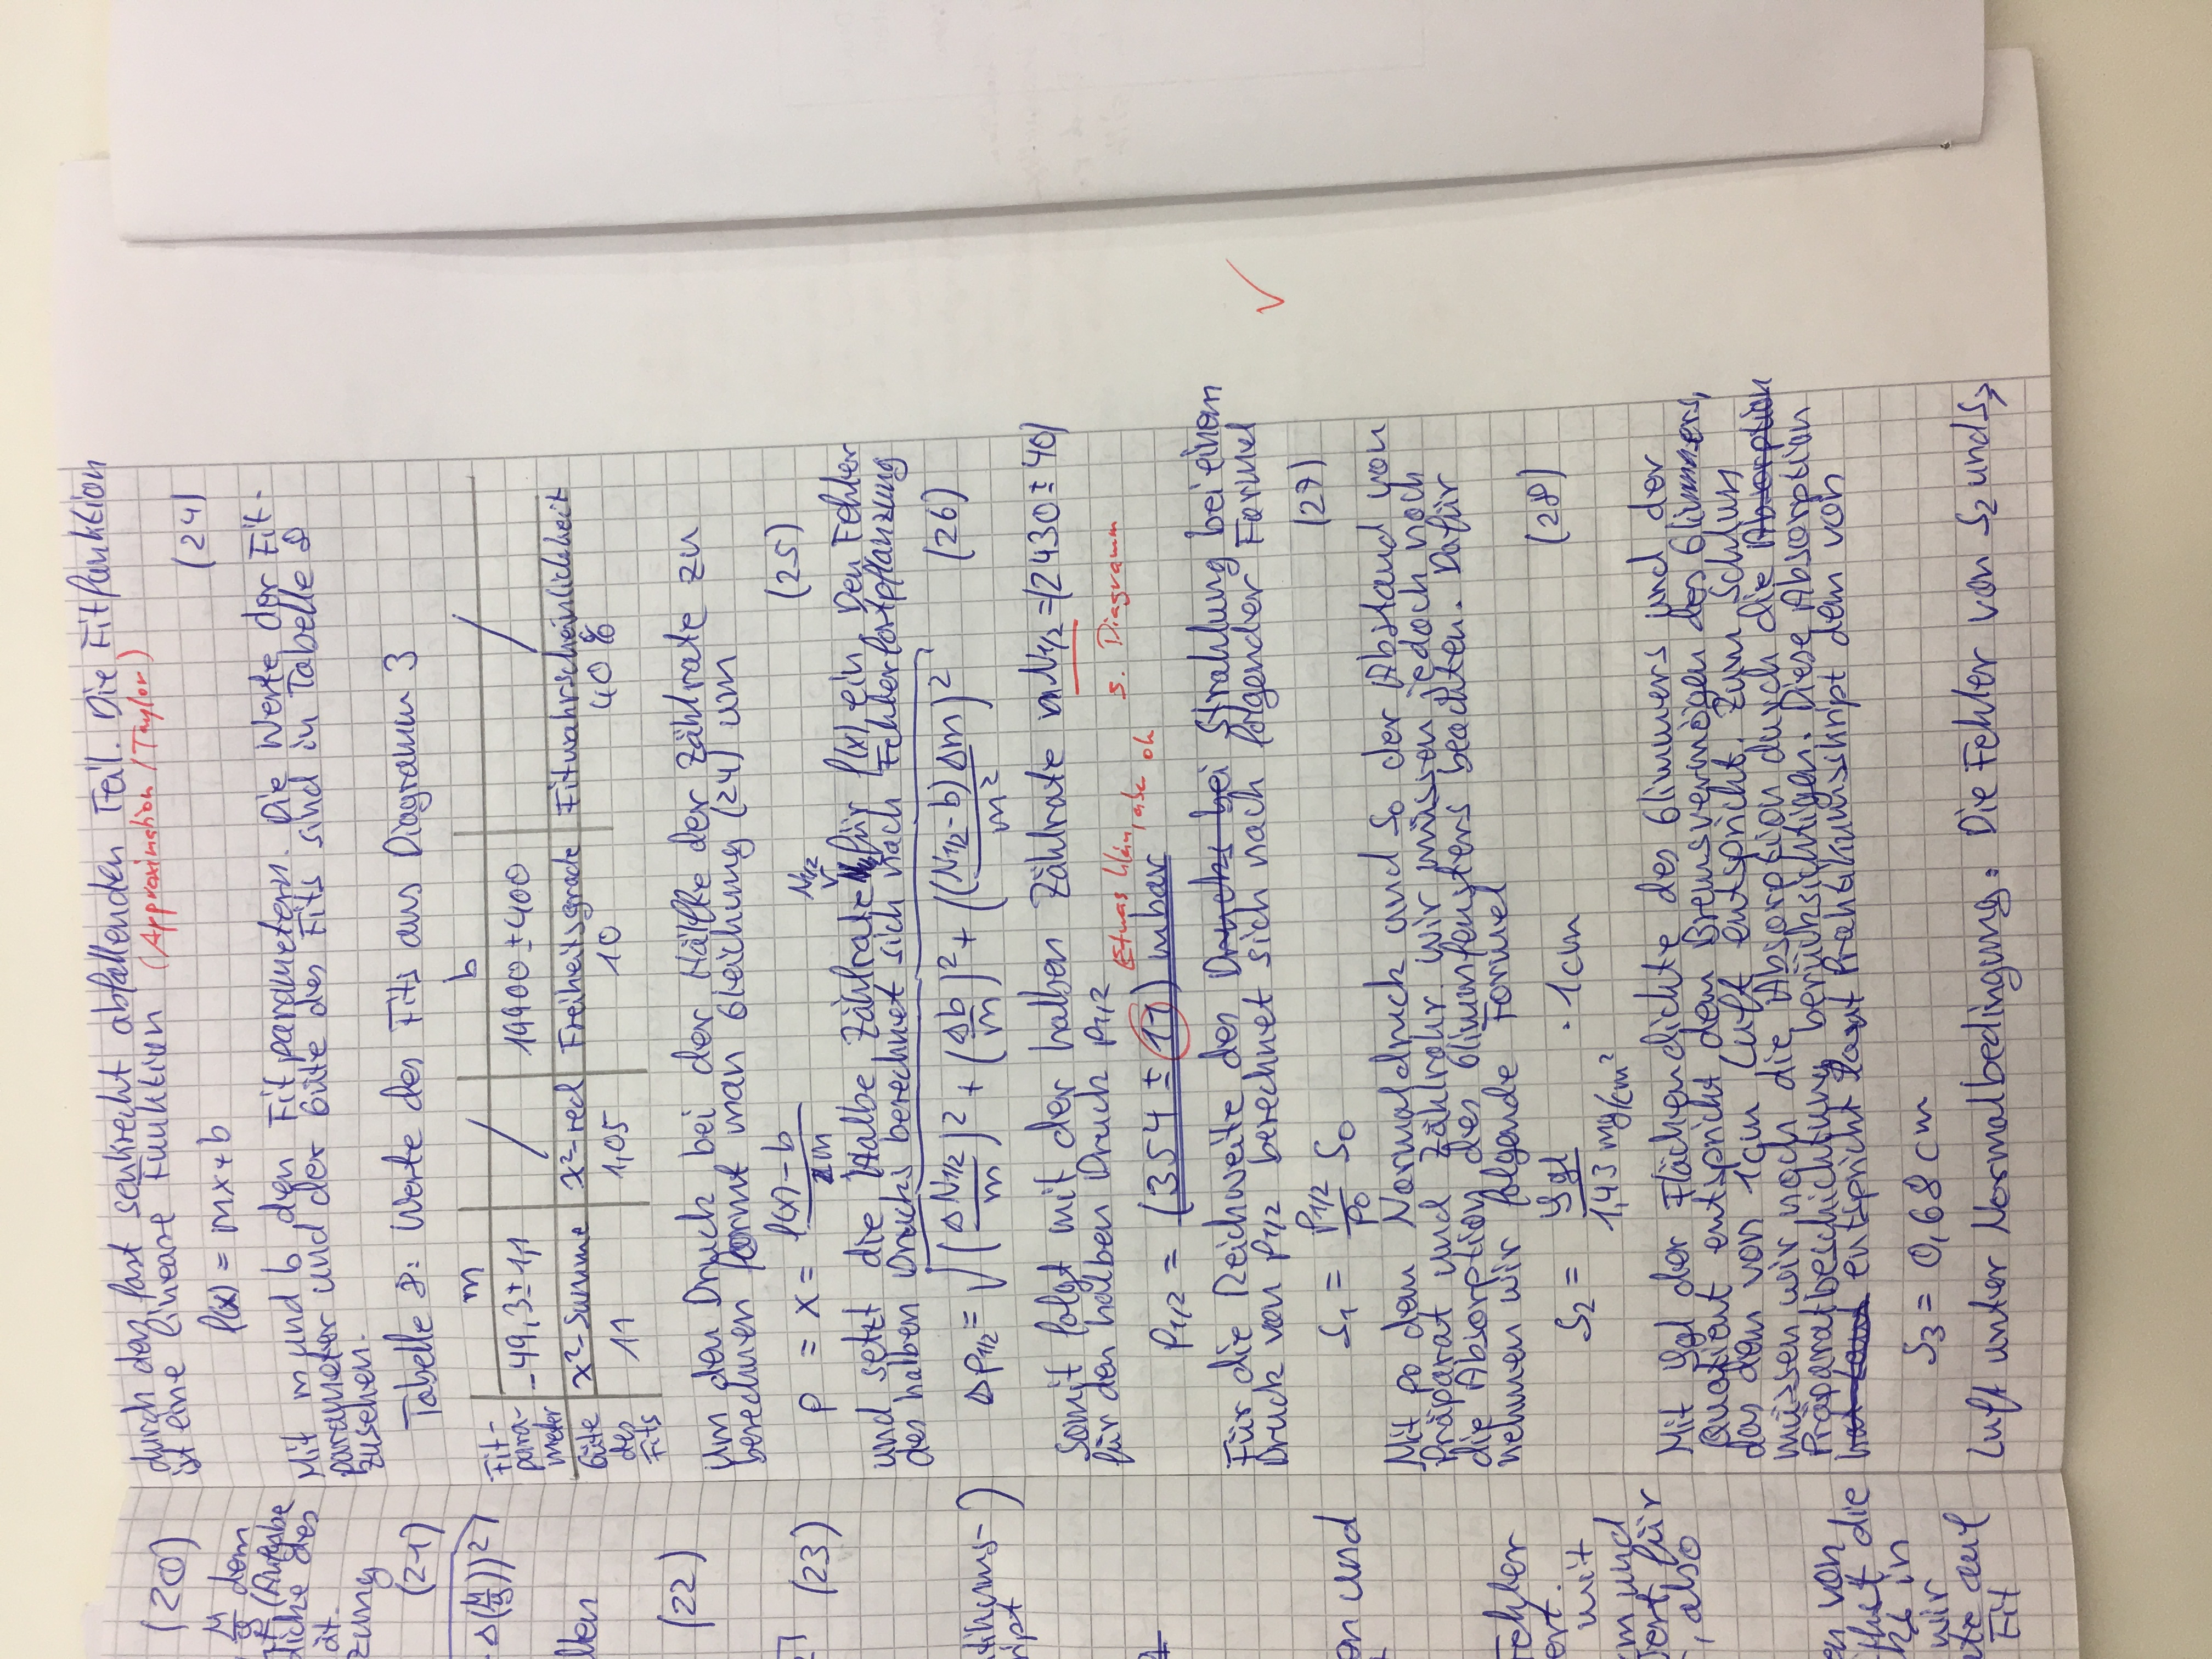 (20)
M/ρ dem
(Aufgabe
dliche des
ät.
zung
(21)
Δ(M/ρ))²
llen
(22)
(23)
ript
on und
Fehler
ert.
mit
cm und
Wert für
, also
en von
die
in
wir
auf
Fit
durch den fast senkrecht abfallenden Teil. Die Fitfunktion
ist eine lineare Funktion (Approximation / Taylor)
f(x) = mx+b (24)
Mit m und b den Fitparametern. Die Werte der Fit-
parameter und der Güte des Fits sind in Tabelle 8
zusehen.
Tabelle 8: Werte des Fits aus Diagramm 3
m / b /
Fit-
para-
meter
-49,3±1,1 19900±400
Güte
des
Fits
χ²-Summe χ²-red Freiheitsgrade Fitwahrscheinlichkeit
11 1,05 10 40%
Um den Druck bei der Hälfte der Zählrate zu
berechnen formt man Gleichung (24) um
p = x = (f(x)-b)/m (25)
und setzt die Halbe Zählrate N1/2 für f(x) ein. Den Fehler
des halben Drucks berechnet sich nach Fehlerfortpflanzung
Δp1/2 = √((ΔN1/2/m)² + (Δb/m)² + ((N1/2-b)Δm/m²)²) (26)
Somit folgt mit der halben Zählrate N1/2 = (2430±40)
für den halben Druck p1/2
s. Diagramm
Etwas klein, aber ok
p1/2 = (354 ± 11) mbar
Für die Reichweite der Drucks bei Strahlung bei einem
Druck von p1/2 berechnet sich nach folgender Formel
S1 = p1/2/p0 S0 (27)
Mit p0 dem Normaldruck und S0 der Abstand von
Präparat und Zählrohr. Wir müssen jedoch noch
die Absorption des Glimmfensters beachten. Dafür
nehmen wir folgende Formel
S2 = ρgl/1,43 mg/cm² · 1cm (28)
Mit ρgl der Flächendichte des Glimmers und der
Quotient entspricht dem Bremsvermögen des Glimmers,
das dem von 1cm Luft entspricht. Zum Schluss
müssen wir noch die Absorption durch die Absorption
Präparatbeschichtung berücksichtigen. Diese Absorption
hat laut entspricht laut Praktikumsskript dem von
S3 = 0,68 cm
Luft unter Normalbedingung. Die Fehler von S2 und S3